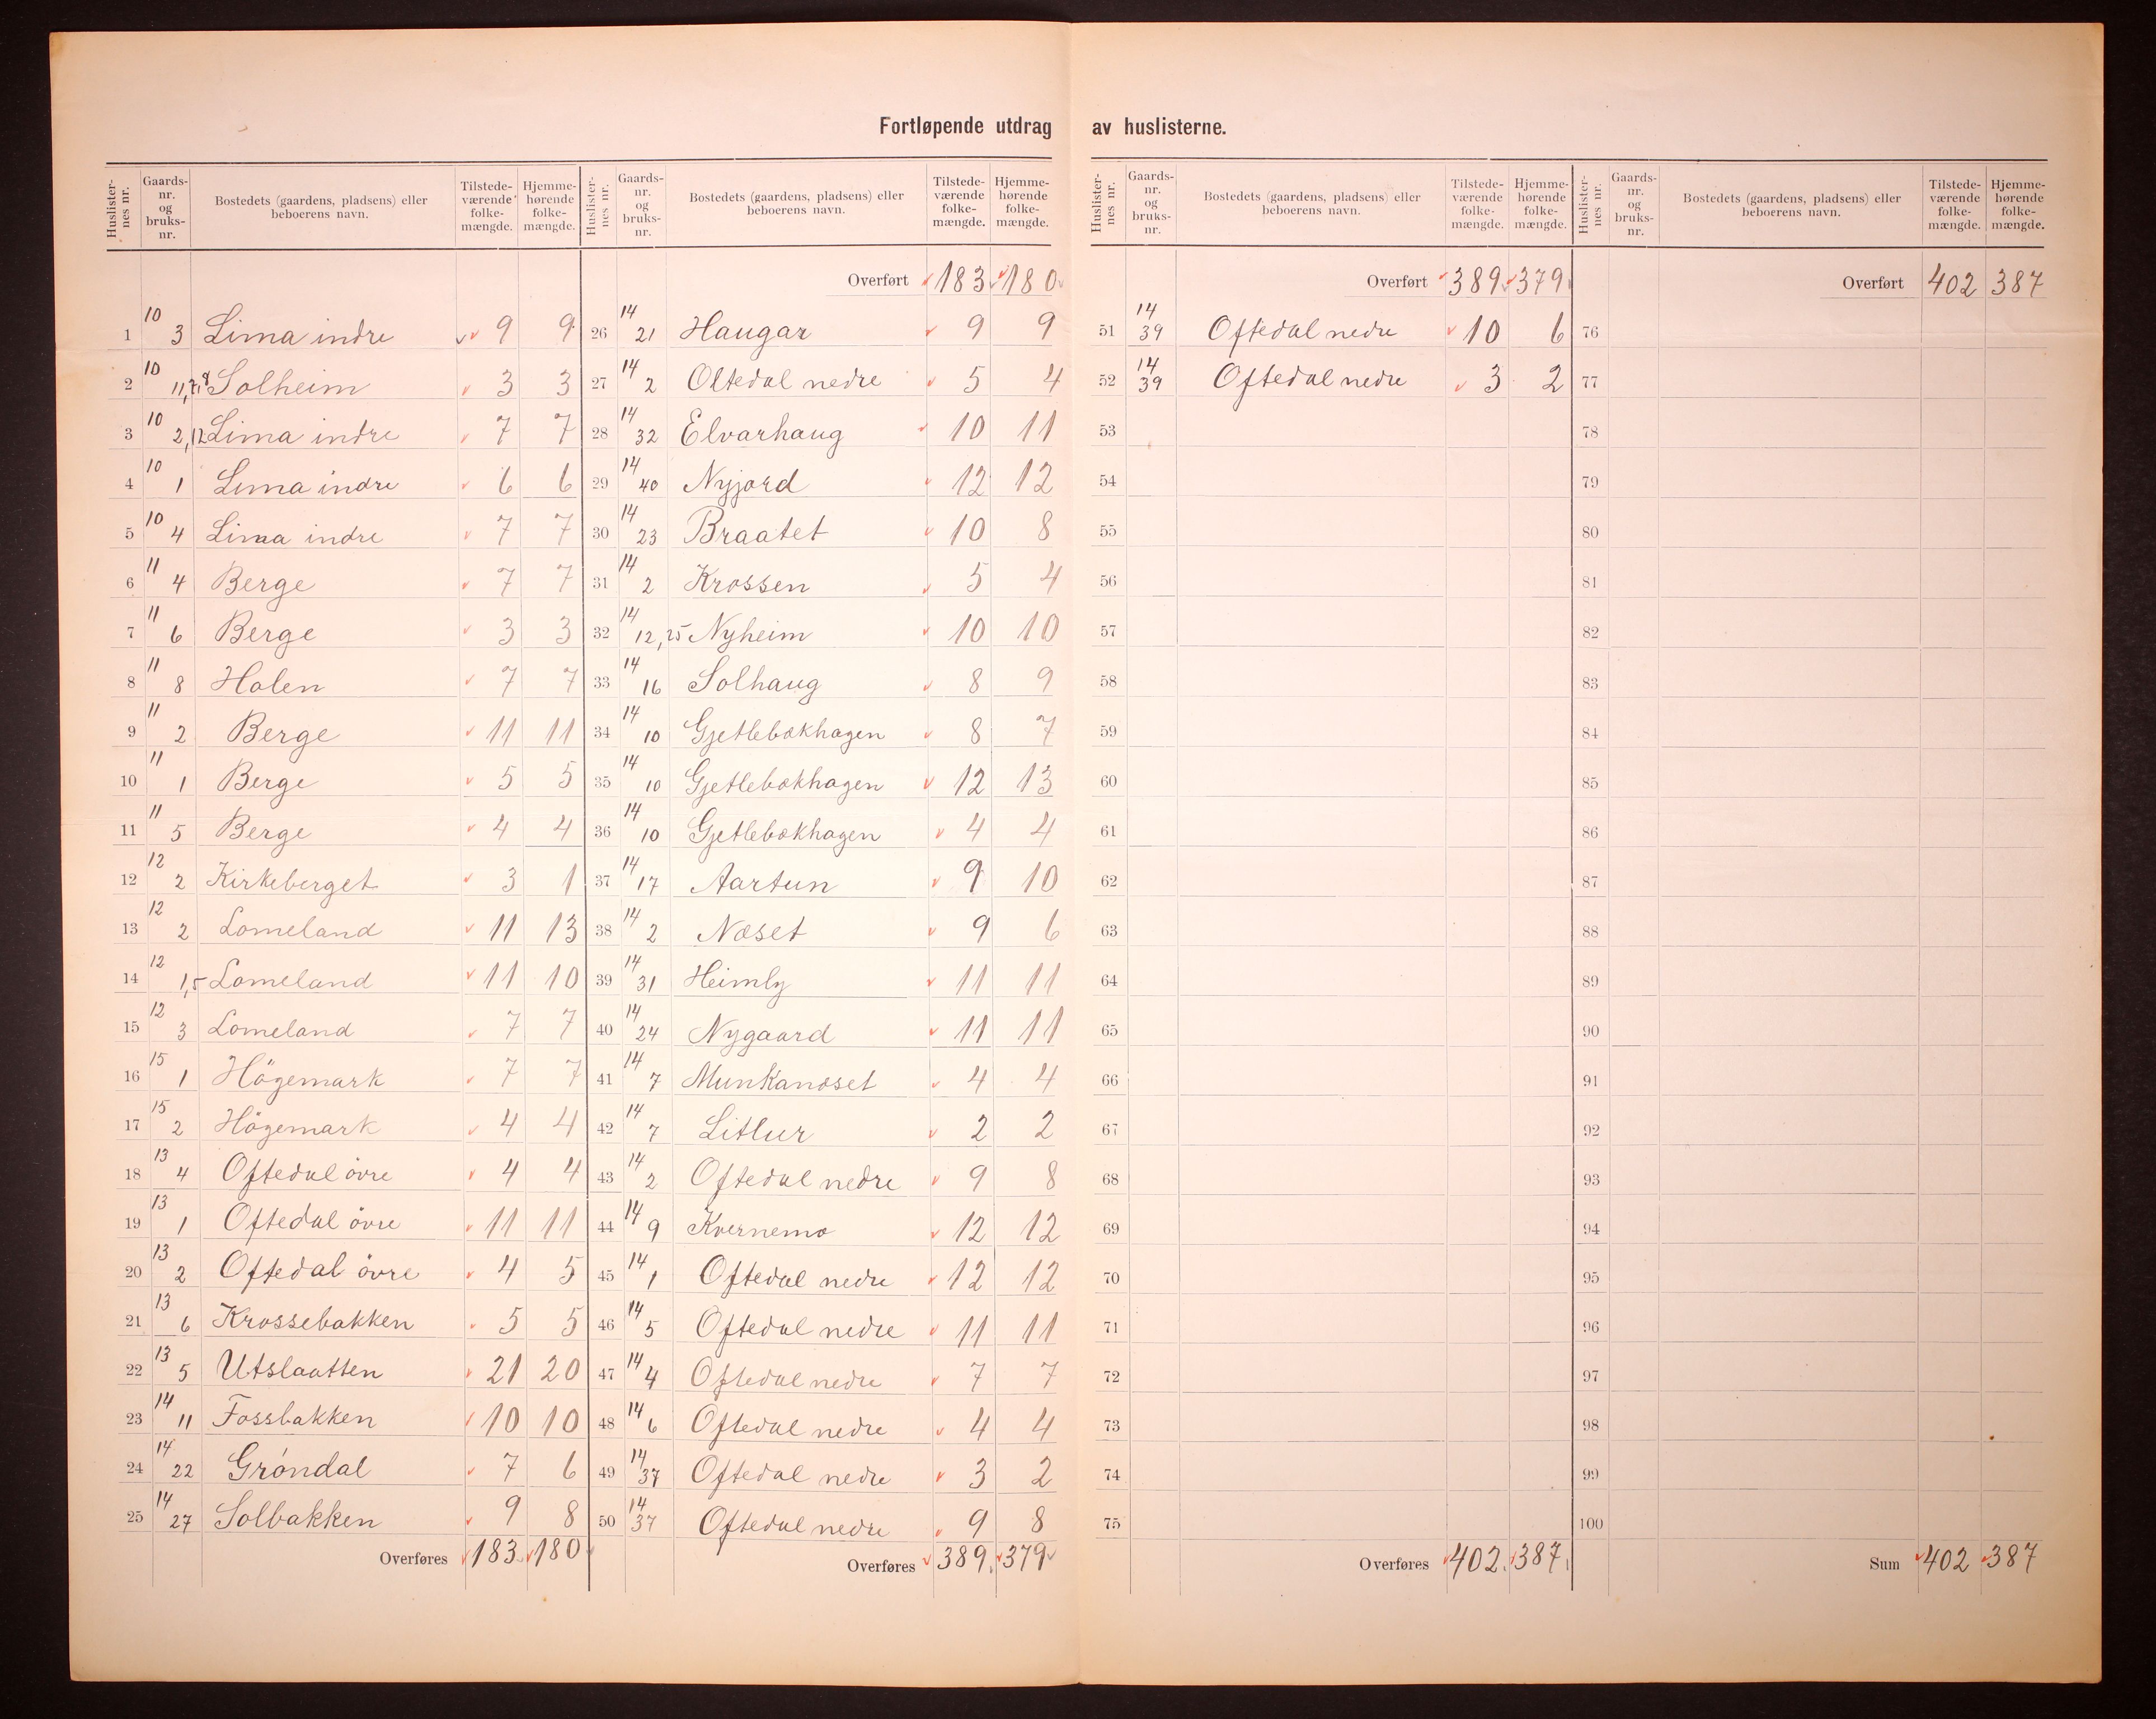 Fortløpende utdrag av huslisterne.
Huslisternes nr. Gaardsnr. og bruksnr. Bostedets (gaardens, pladsens) eller beboerens navn. Tilstedeværende folkemængde. Hjemmehørende folkemængde.
1 10 3 Lima indre 9 9
2 10 11,7,8 Solheim 3 3
3 10 2,12 Lima indre 7 7
4 10 1 Lima indre 6 6
5 10 4 Lima indre 7 7
6 11 4 Berge 7 7
7 11 6 Berge 3 3
8 11 8 Holen 7 7
9 11 2 Berge 11 11
10 11 1 Berge 5 5
11 11 5 Berge 4 4
12 12 2 Kirkeberget 3 1
13 12 2 Lomeland 11 13
14 12 1,5 Lomeland 11 10
15 12 3 Lomeland 7 7
16 15 1 Högemark 7 7
17 15 2 Högemark 4 4
18 13 4 Oftedal övre 4 4
19 13 1 Oftedal övre 11 11
20 13 2 Oftedal övre 4 5
21 13 6 Krossebakken 5 5
22 13 5 Utslaatten 21 20
23 14 11 Fossbakken 10 10
24 14 22 Gröndal 7 6
25 14 27 Solbakken 9 8
Overføres 183 180
Huslisternes nr. Gaardsnr. og bruksnr. Bostedets (gaardens, pladsens) eller beboerens navn. Tilstedeværende folkemængde. Hjemmehørende folkemængde.
Overført 183 180
26 14 21 Haugar 9 9
27 14 2 Oltedal nedre 5 4
28 14 32 Elvarhaug 10 11
29 14 40 Nyjord 12 12
30 14 23 Braatet 10 8
31 14 2 Krossen 5 4
32 14 12,25 Nyheim 10 10
33 14 16 Solhaug 8 9
34 14 10 Gjetlebækhagen 8 7
35 14 10 Gjetlebækhagen 12 13
36 14 10 Gjetlebækhagen 4 4
37 14 17 Aartun 9 10
38 14 2 Næset 9 6
39 14 31 Heimly 11 11
40 14 24 Nygaard 11 11
41 14 7 Munkanæset 4 4
42 14 7 Litlur 2 2
43 14 2 Oftedal nedre 9 8
44 14 9 Kvernemo 12 12
45 14 1 Oftedal nedre 12 12
46 14 5 Oftedal nedre 11 11
47 14 4 Oftedal nedre 7 7
48 14 6 Oftedal nedre 4 4
49 14 37 Oftedal nedre 3 2
50 14 37 Oftedal nedre 9 8
Overføres 389 379
Huslisternes nr. Gaardsnr. og bruksnr. Bostedets (gaardens, pladsens) eller beboerens navn. Tilstedeværende folkemængde. Hjemmehørende folkemængde.
Overført 389 379
51 14 39 Oftedal nedre 10 6
52 14 39 Oftedal nedre 3 2
53
54
55
56
57
58
59
60
61
62
63
64
65
66
67
68
69
70
71
72
73
74
75
Overføres 402 387
Huslisternes nr. Gaardsnr. og bruksnr. Bostedets (gaardens, pladsens) eller beboerens navn. Tilstedeværende folkemængde. Hjemmehørende folkemængde.
Overført 402 387
76
77
78
79
80
81
82
83
84
85
86
87
88
89
90
91
92
93
94
95
96
97
98
99
100
Sum 402 387